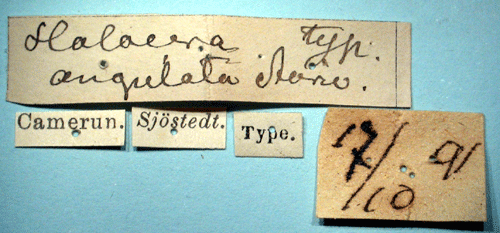 Holocera typ.
angulata Auriv.
Camerun.
Sjöstedt.
Type.
17/10 91